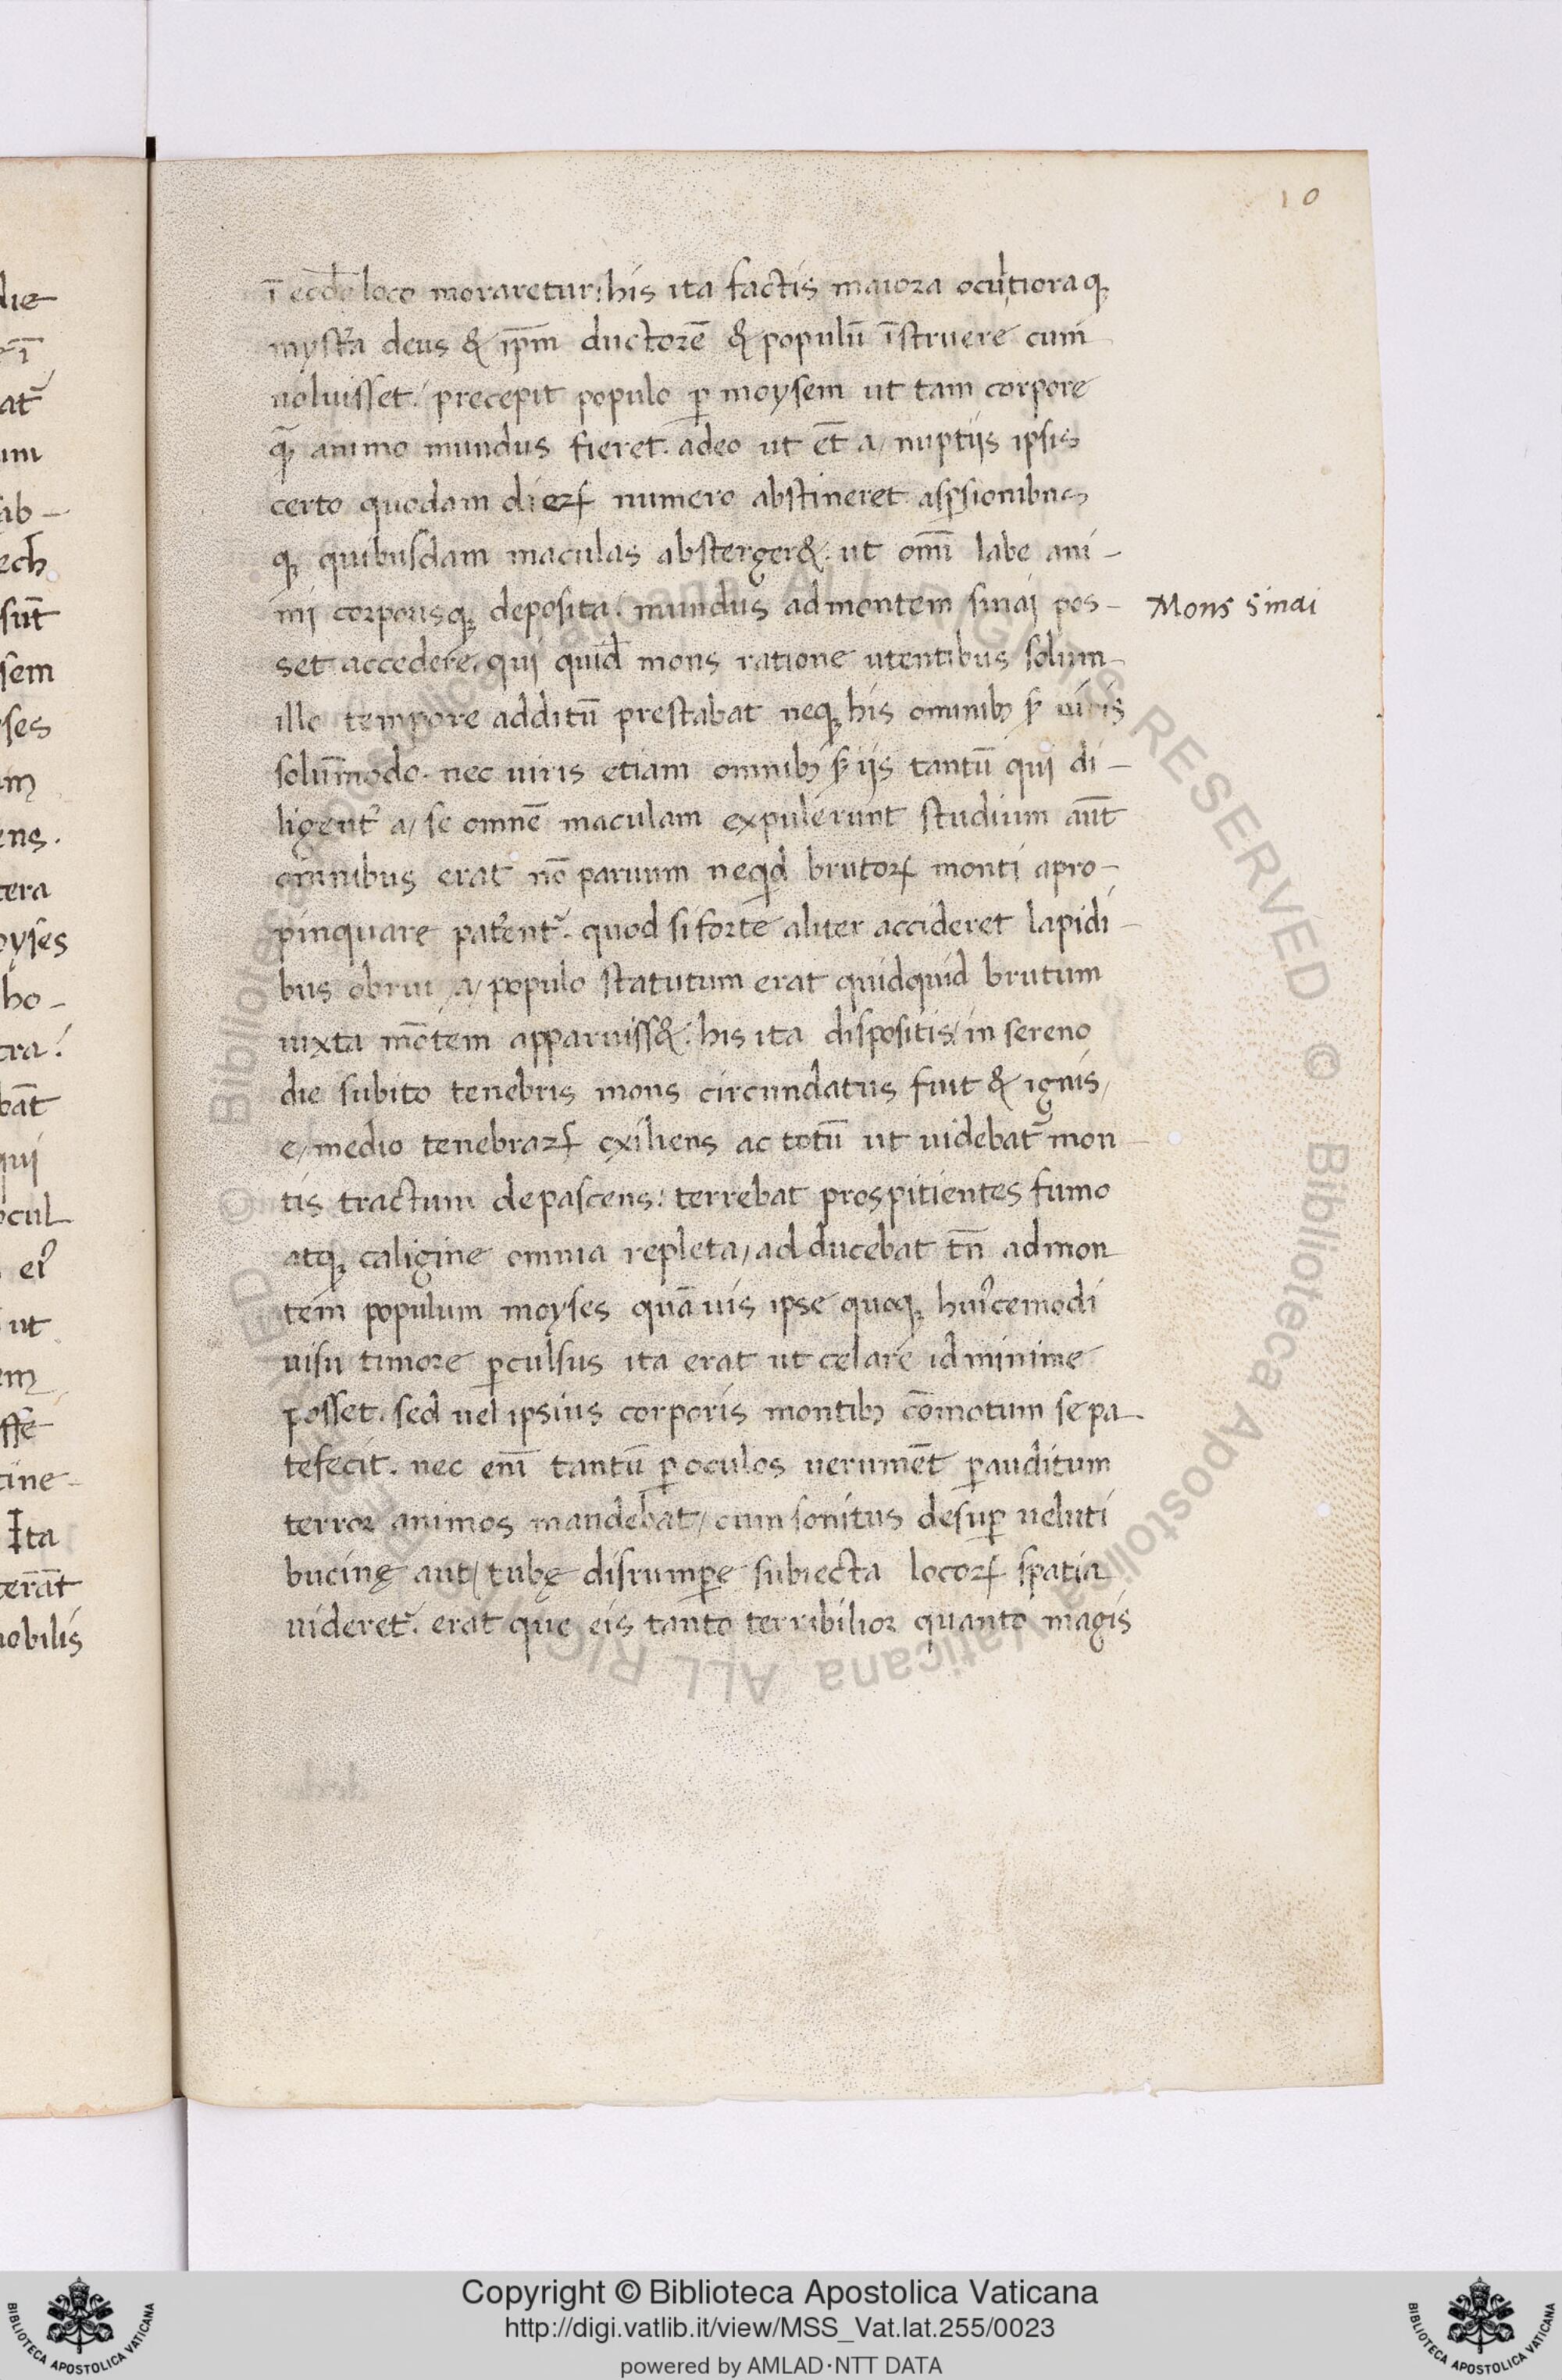 10
ī eodē loco moraretur: his ita factis maiora ocultioraq;
mysťa deus & ip̄m ductorē & populū īstruere cum
uoluisset: precepit populo p̲ moysem ut tam corpore
q̄ animo mundus fieret. adeo ut et̄ a/ nuptijs ipsis
certo quodam dierꝝ numero abstineret asp̲sionibus
q; quibusdam maculas absterger&. ut omī labe ani-
mi corporisq; deposita: mundus ad montem sinai pos-
set accedere. qui quid̄ mons ratione utentibus solum
illo tempore additū prestabat neq; his omnibꝫ sꝫ uiris
solum̄modo. nec uiris etiam omnibꝫ sꝫ ijs tantū qui di-
ligent̾ a/ se omnē maculam expulerunt studium aūt
omnibus erat nō paruum neq̇d brutorꝝ monti apro-
pinquare pat̾ent̾. quod si forte aliter accideret lapidi-
bus obrui a/ populo statutum erat quidquid brutum
iuxta mōtem apparuiss&. his ita dispositis/ in sereno
die subito tenebris mons circundatus fuit & ignis/
e/ medio tenebrarꝝ exiliens ac totū ut uidebat̾ mon
tis tractum depascens: terrebat prospitientes fumo
atq; caligine omnia repleta/ adducebat tn̄ ad mon
tem populum moyses quāuis ipse quoq; hui̾cemodi
uisu timore p̲culsus ita erat ut celare id minime
posset. sed uel ipsius corporis montibꝫ cōmotum se pa-
tefecit. nec enī tantū p̲ oculos uerumet̄ p̲ auditum
terror animos mandebat/ cum sonitus desup̲ ueluti
bucinę aut/ tubę disrump̲e subiecta locorꝝ spatia
uideret̾. erat que eis tanto terribilior quanto magis
Mons Sinai
die
at̾
um
ab-
ech
sūt
sem
yses
ens.
tera
oyses
ho-
tra:
bāt
qui
ocul
ei̾
ut
em
sse
tine-
Ita
terāt
nobilis
© Biblioteca Apostolica Vaticana ALL RIGHTS RESERVED © Biblioteca Apostolica Vaticana ALL RIGHTS RESERVED
Copyright © Biblioteca Apostolica Vaticana
http://digi.vatlib.it/view/MSS_Vat.lat.255/0023
powered by AMLAD·NTT DATA
BIBLIOTECA APOSTOLICA VATICANA
BIBLIOTECA APOSTOLICA VATICANA